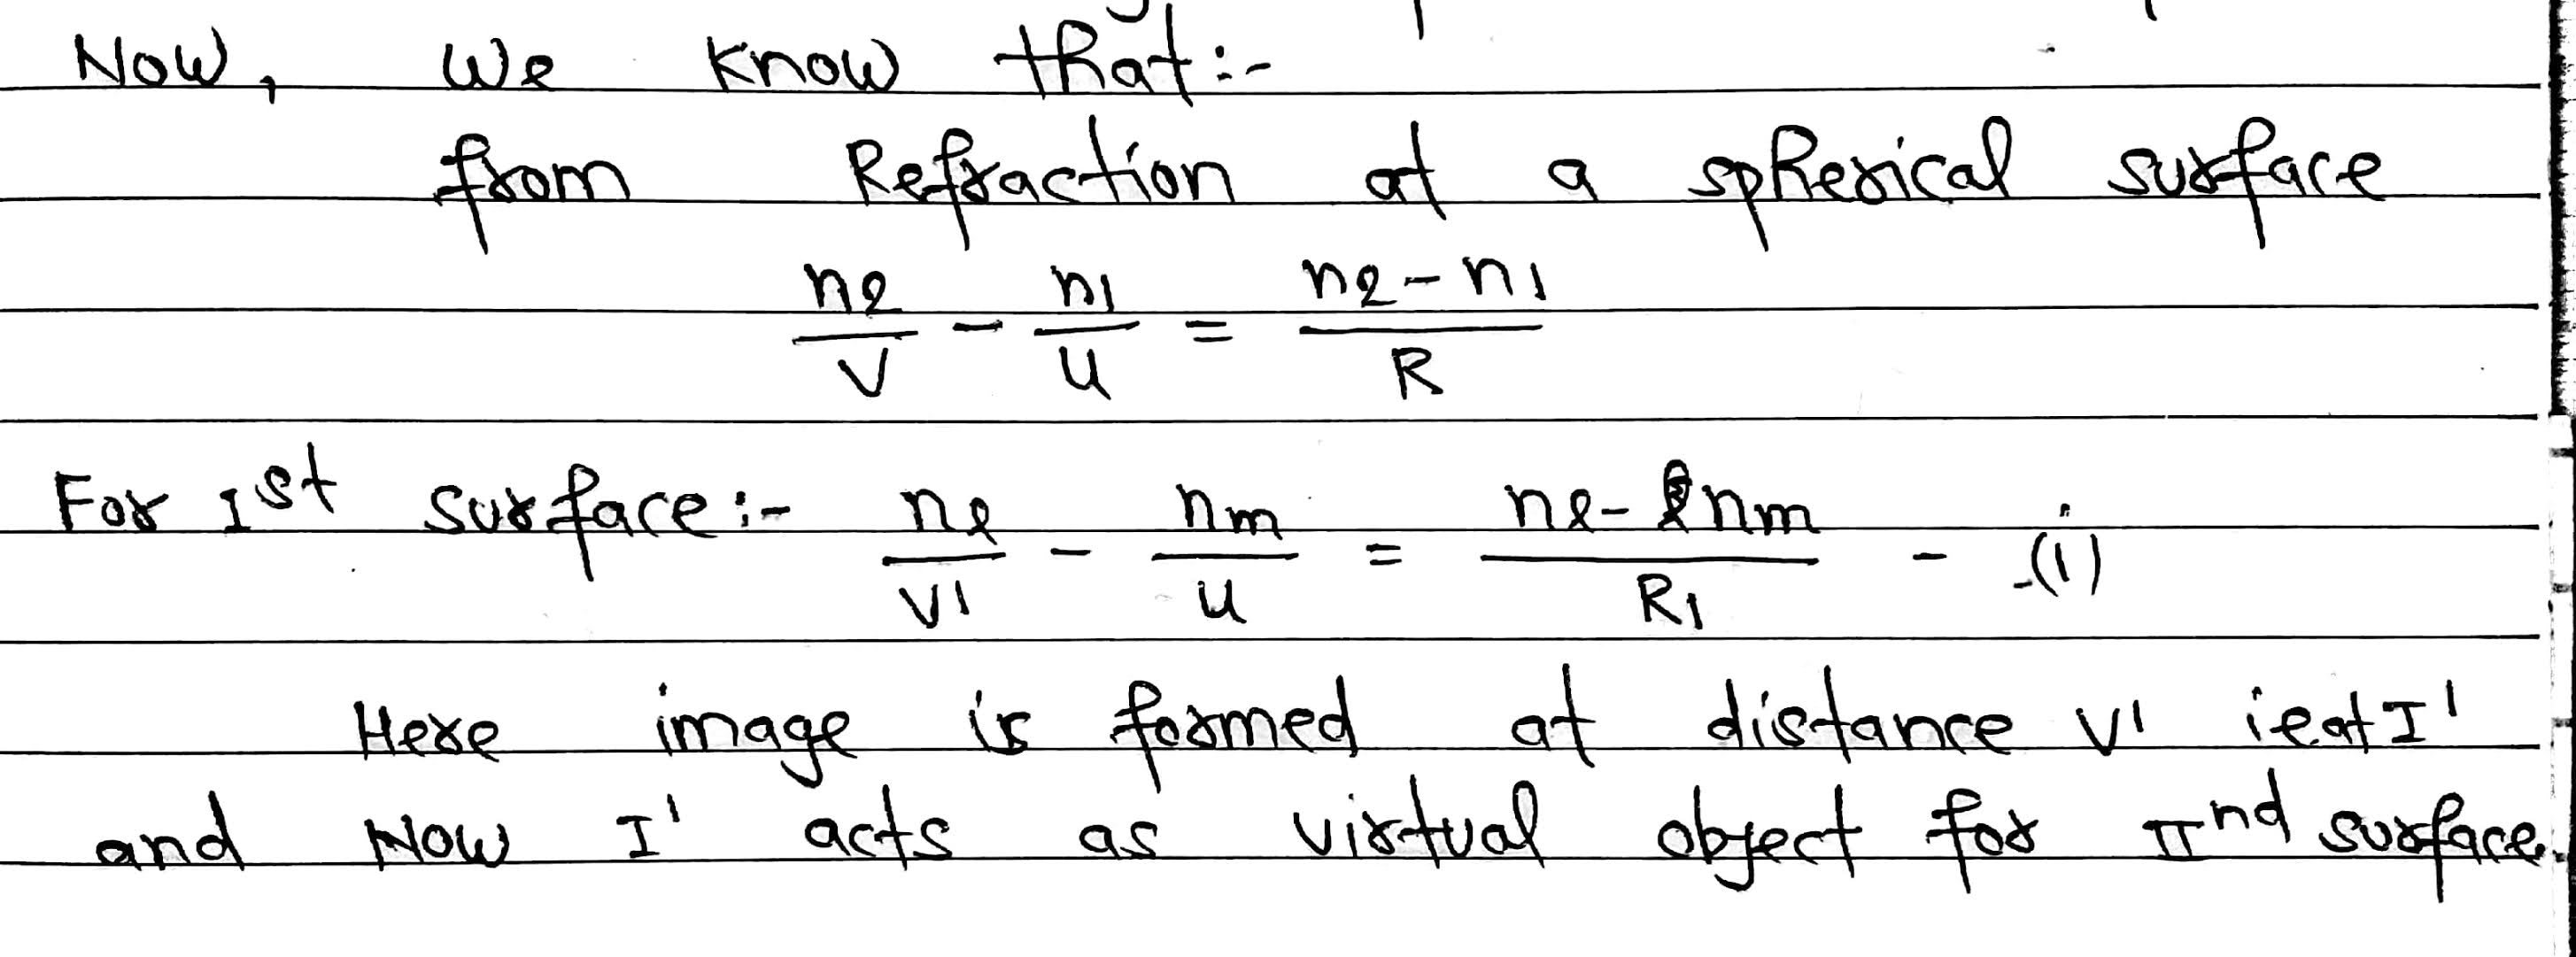 Now, We know that:-
from Refraction at a spherical surface
n2/V - n1/u = n2-n1/R
For 1st surface:- nl/V' - nm/u = nl-nm/R1 - (i)
Here image is formed at distance V' ie at I'
and Now I' acts as virtual object for IInd surface.